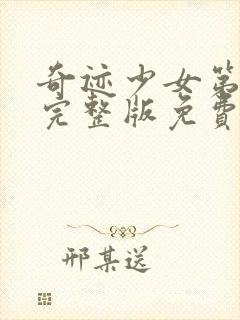 奇迹少女第
完整版免費
邢某送